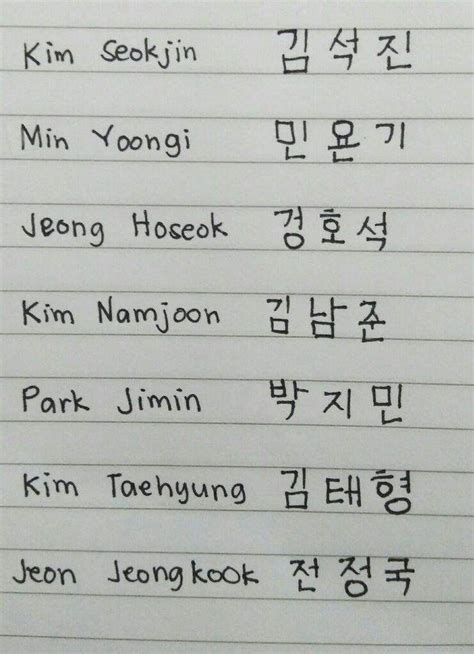 Kim Seokjin 김석진
Min Yoongi 민욘기
Jeong Hoseok 경호석
Kim Namjoon 김남준
Park Jimin 박지민
Kim Taehyung 김태형
Jeon Jeongkook 전정국